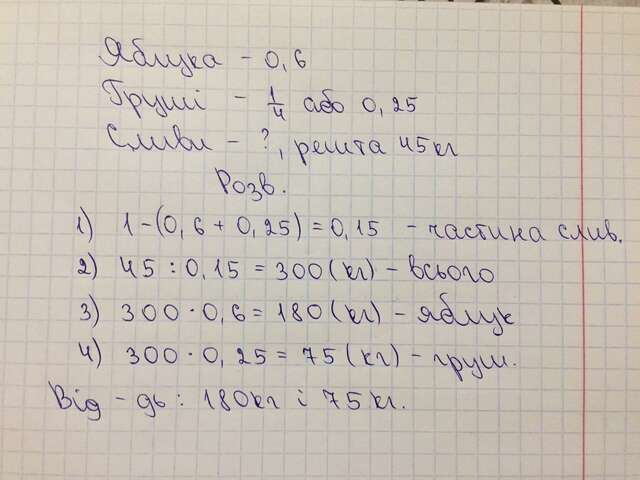 Яблука - 0,6
Груші - 1/4 або 0,25
Сливи - ?, решта 45кг
Розв.
1) 1-(0,6 + 0,25) = 0,15 - частина слив.
2) 45 : 0,15 = 300(кг) - всього
3) 300 · 0,6 = 180(кг) - яблук
4) 300 · 0,25 = 75(кг) - груш.
Від - дь : 180кг і 75кг.